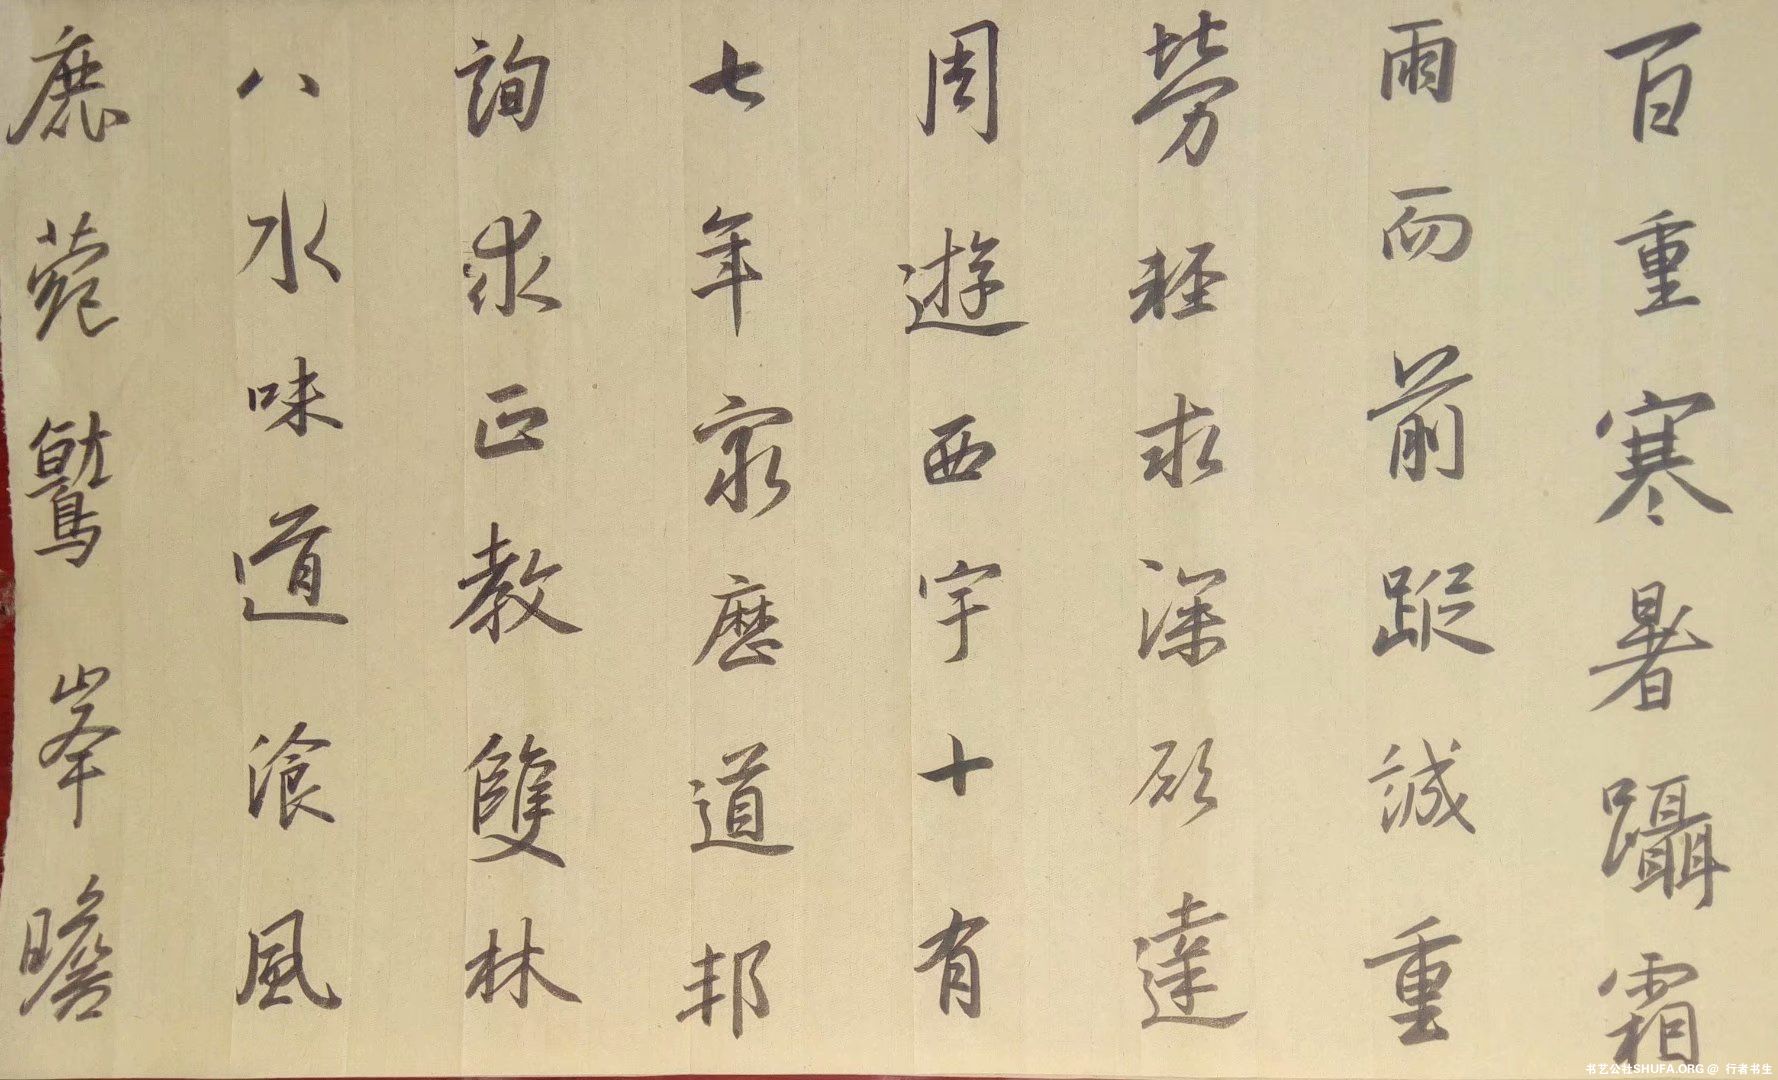 百重寒暑躡霜
雨而前蹤誠重
勞輕求深願達
周遊西宇十有
七年窮歷道邦
詢求正教雙林
八水味道飡風
鹿菀鷲峯瞻
书艺公社SHUFA.ORG @ 行者书生